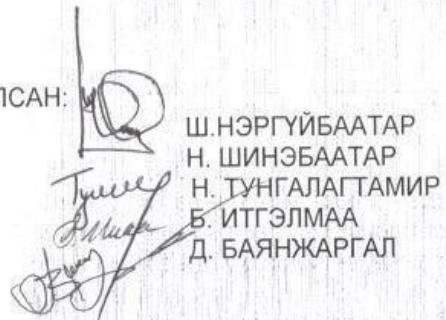 ПСАН:
Ш.НЭРГҮЙБААТАР
Н. ШИНЭБААТАР
Н. ТУНГАЛАГТАМИР
Б. ИТГЭЛМАА
Д. БАЯНЖАРГАЛ